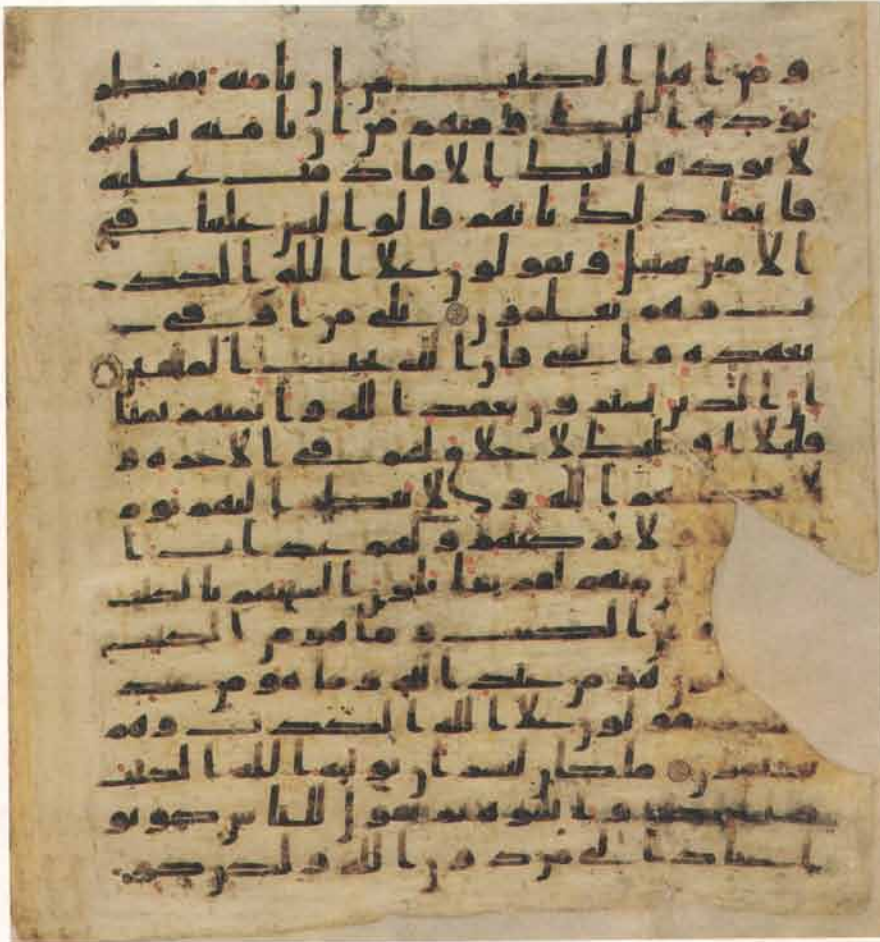 و من اهل الكتب من ان تامنه بقنطر
يوده اليك و منهم من ان تامنه بدينر
لا يوده اليك الا ما دمت عليه
قايما ذلك بانهم قالوا ليس علينا في
الامين سبيل و يقولون علا الله الكذ
ب و هم يعلمون بلى من اوفى
بعهده و اتقى فان الله يحب المتقين
ان الذين يشترون بعهد الله و ايمنهم ثمنا
قليلا اوليك لا خلاق لهم في الاخره و
لا يكلمهم الله و لا ينظر اليهم يوم
لا يزكيهم و لهم عذاب ا
منهم لفريقا يلون السنتهم بالكتب
من الكتب و ما هو من الكتب
هو من عند الله و ما هو من عند
يقولون علا الله الكذب و هم
يعلمون ما كان لبشر ان يوتيه الله الكتب
و النبوه ثم يقول للناس كونو
ا عبادا لي من دون الله و لكن كو